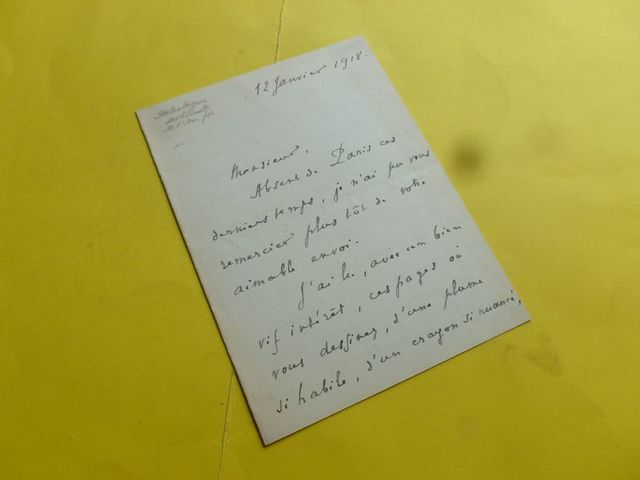 12 Janvier 1918.
Monsieur,
Absent de Paris ces
derniers temps, je n'ai pu vous
remercier plus tôt de votre
aimable envoi.
J'ai lu, avec un bien
vif intérêt, ces pages où
vous dessinez, d'une plume
si habile, d'un crayon si nuancé,